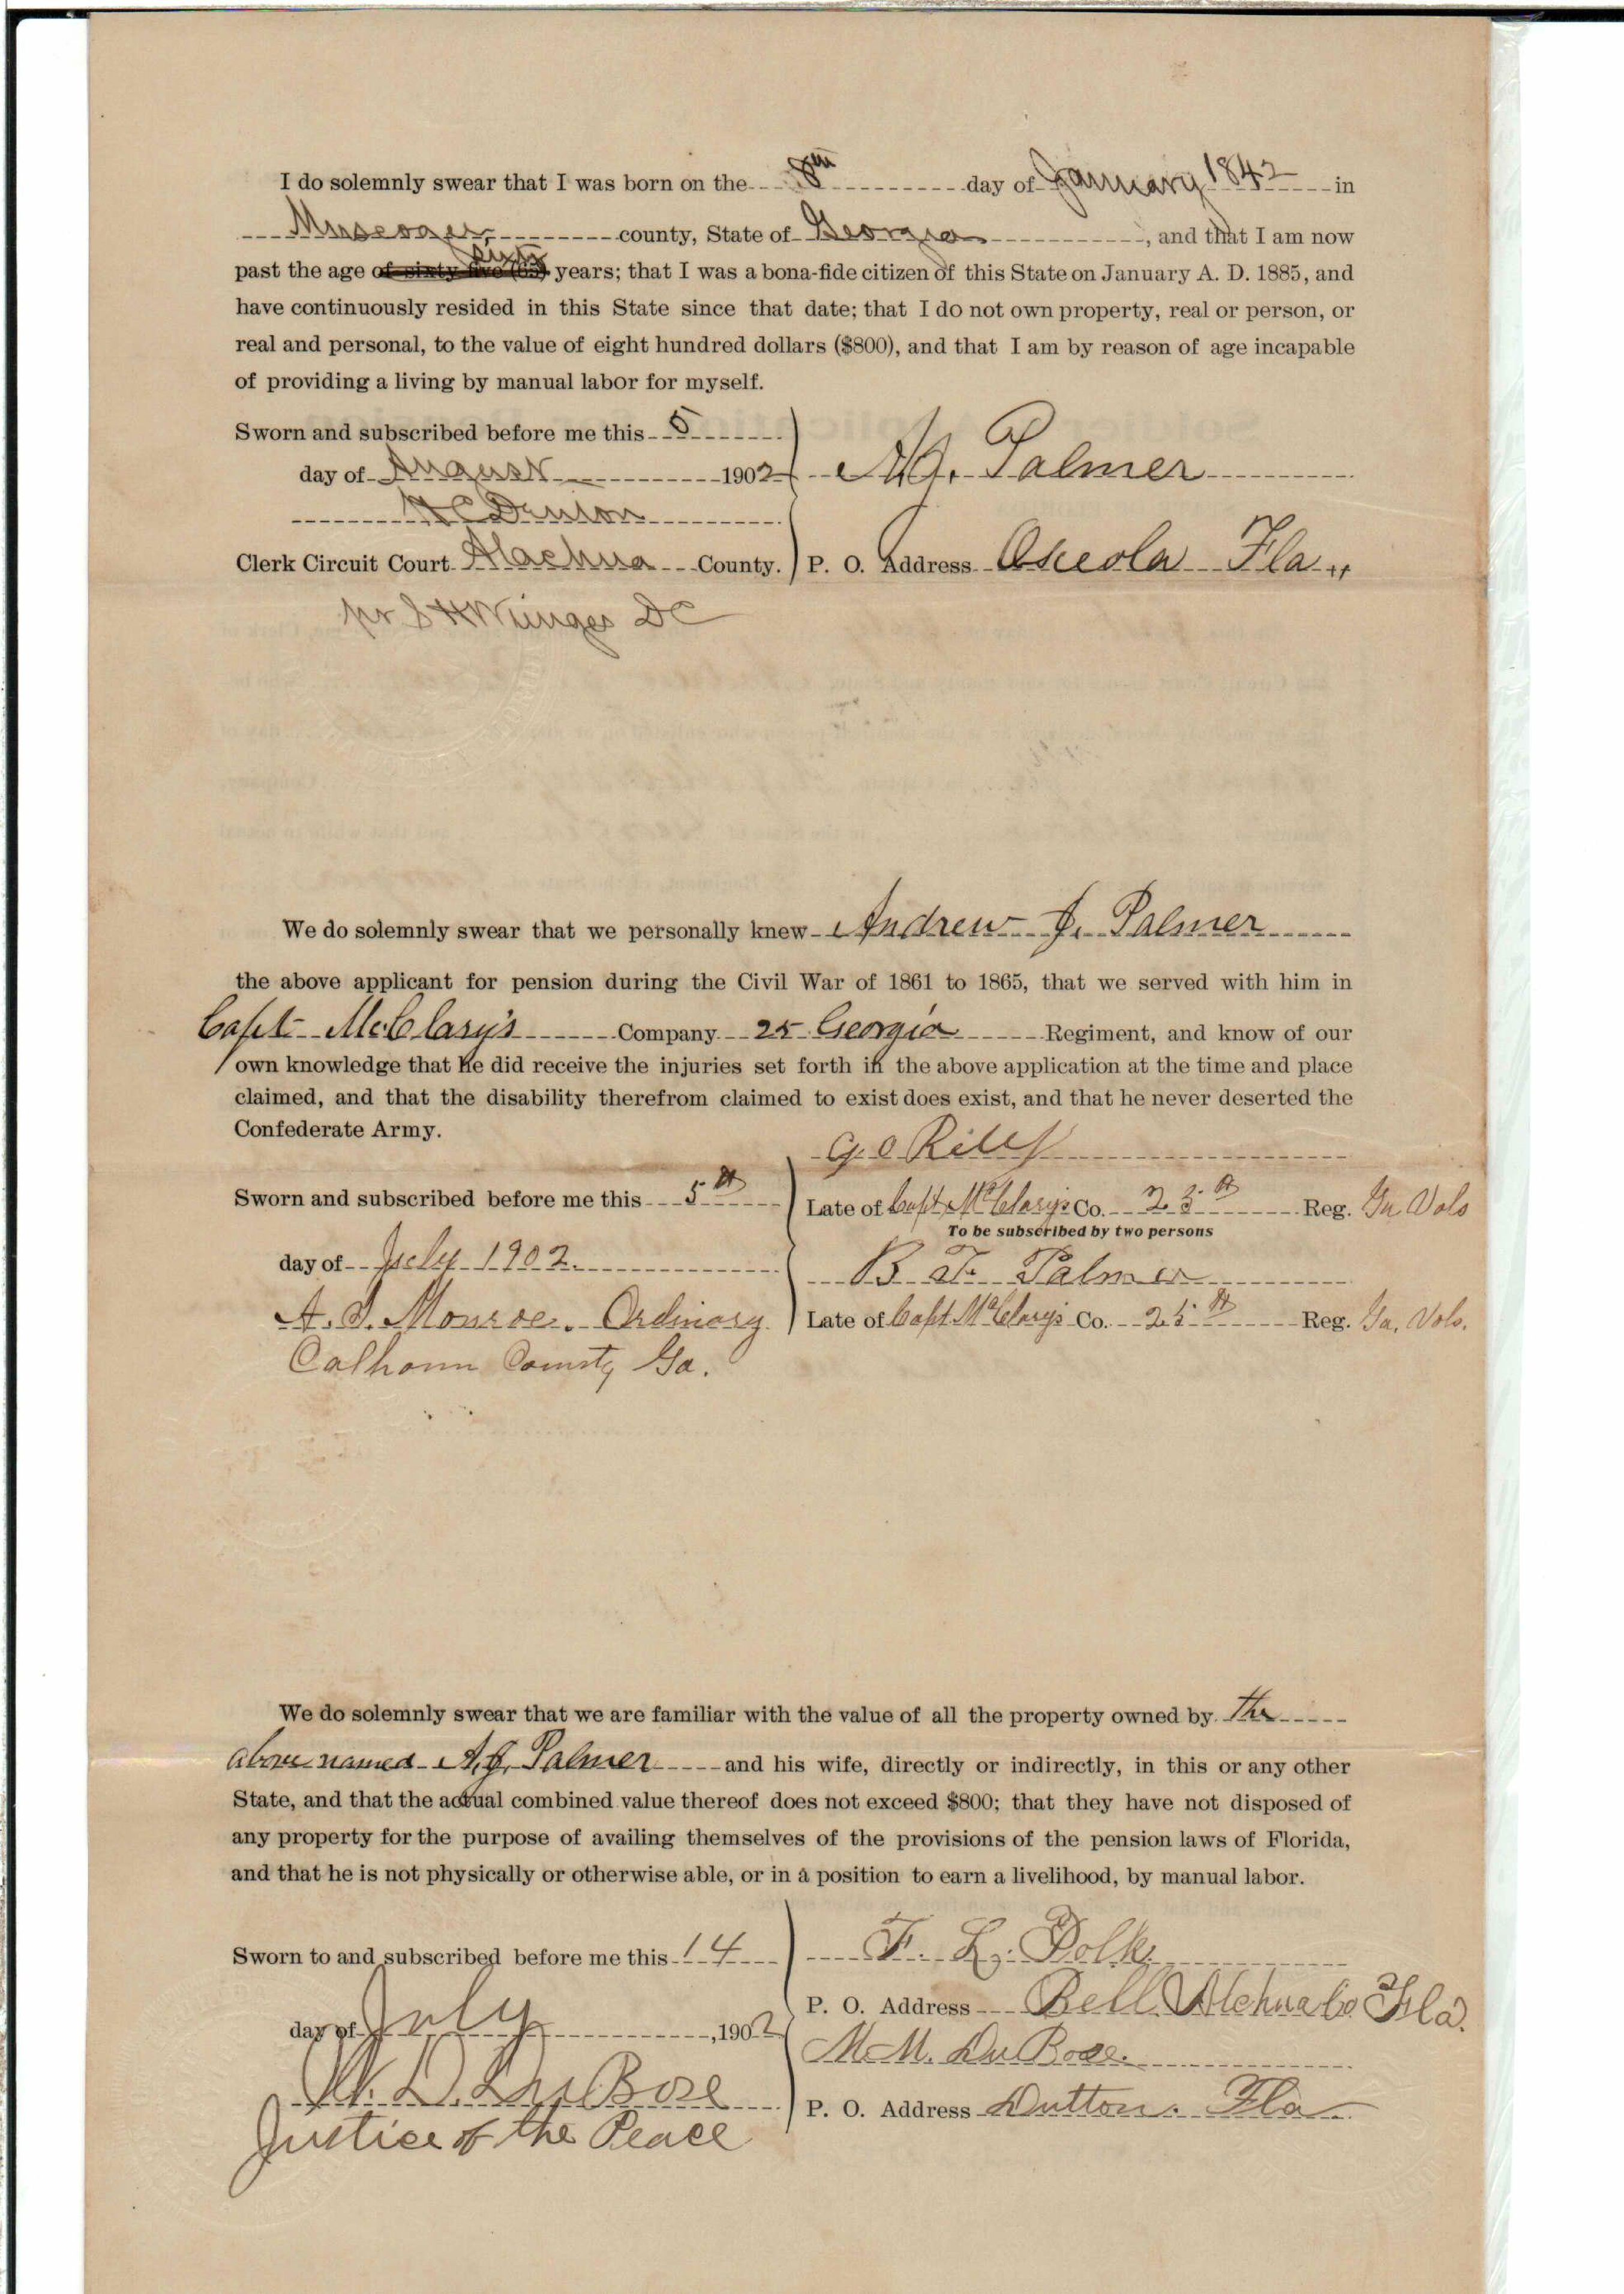 I do solemnly swear that I was born on the 8th day of January 1842 in
Muscogee, county, State of Georgia, and that I am now
sixty
past the age of sixty-five (65) years; that I was a bona-fide citizen of this State on January A. D. 1885, and
have continuously resided in this State since that date; that I do not own property, real or person, or
real and personal, to the value of eight hundred dollars ($800), and that I am by reason of age incapable
of providing a living by manual labor for myself.
Sworn and subscribed before me this 5
day of August 1902 A.J. Palmer
H C Denton
Clerk Circuit Court Alachua County. P. O. Address Osceola Fla.,
pr S H Wienges DC
We do solemnly swear that we personally knew Andrew J. Palmer
the above applicant for pension during the Civil War of 1861 to 1865, that we served with him in
Capt McClary's Company 25 Georgia Regiment, and know of our
own knowledge that he did receive the injuries set forth in the above application at the time and place
claimed, and that the disability therefrom claimed to exist does exist, and that he never deserted the
Confederate Army.
G. O Riley
Sworn and subscribed before me this 5th Late of Capt McClary's Co. 25th Reg. Ga Vols
To be subscribed by two persons
day of July 1902 B. F. Palmer
A. I. Monroe. Ordinary Late of Capt McClary's Co. 25th Reg. Ga. Vols.
Calhoun County Ga.
We do solemnly swear that we are familiar with the value of all the property owned by the
above named A. J. Palmer and his wife, directly or indirectly, in this or any other
State, and that the actual combined value thereof does not exceed $800; that they have not disposed of
any property for the purpose of availing themselves of the provisions of the pension laws of Florida,
and that he is not physically or otherwise able, or in a position to earn a livelihood, by manual labor.
Sworn to and subscribed before me this 14 F. L. Polk
P. O. Address Bell Alchua Co. Fla.
day of July, 1902
M. M. DuBose.
W. D. DuBose
P. O. Address Dutton. Fla
Justice of the Peace